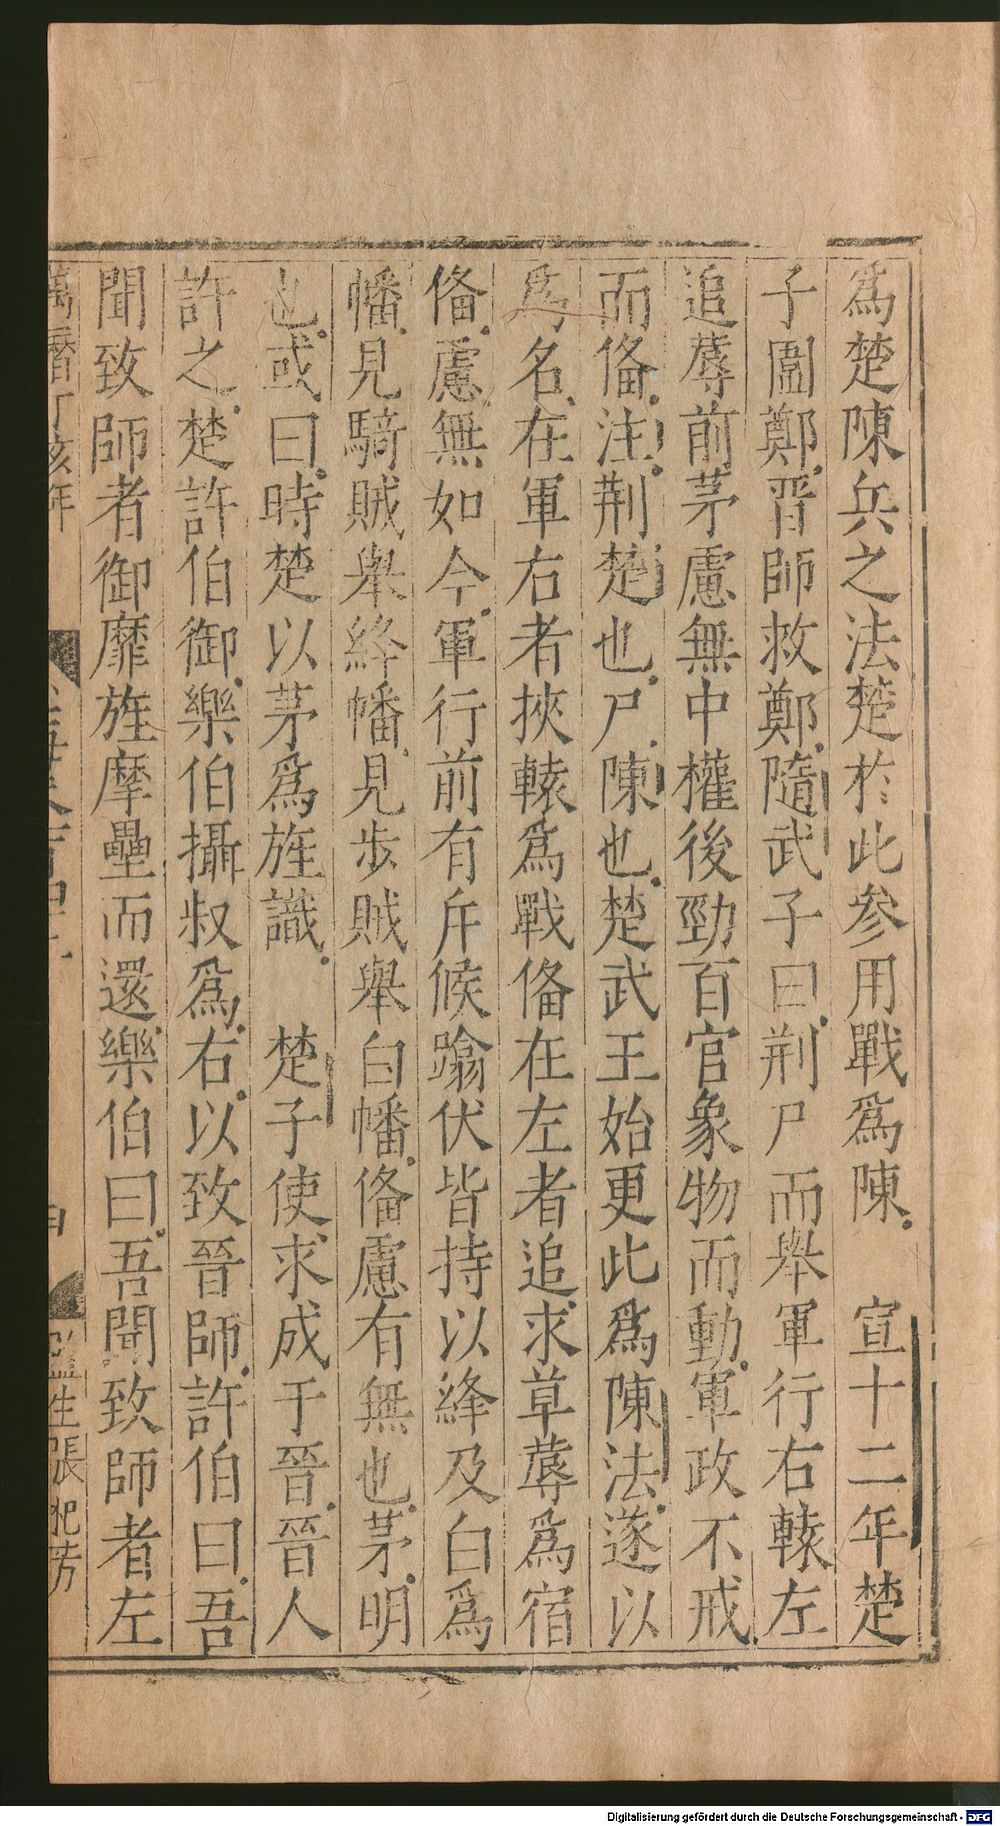 爲楚陳兵之法楚於此參用戰爲陳　宣十二年楚
子圍鄭晉師救鄭隨武子曰荆尸而舉軍行右轅左
追蓐前茅慮無中權後勁百官象物而動軍政不戒
而俻注荆楚也尸陳也楚武王始更此爲陳法遂以
爲名在軍右者挾轅爲戰俻在左者追求草蓐爲宿
俻慮無如今軍行前有斥候蹹伏皆持以絳及白爲
幡見騎賊舉絳幡見步賊舉白幡俻慮有無也茅明
也或曰時楚以茅爲旌識　楚子使求成于晉晉人
許之楚許伯御樂伯攝叔爲右以致晉師許伯曰吾
聞致師者御靡旌摩壘而還樂伯曰吾聞致師者左
萬曆丁亥年
監生張
Digitalisierung gefördert durch die Deutsche Forschungsgemeinschaft - DFG